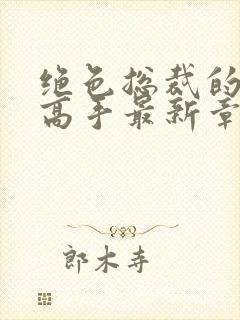 绝色总裁的
高手最新章
郎木寺